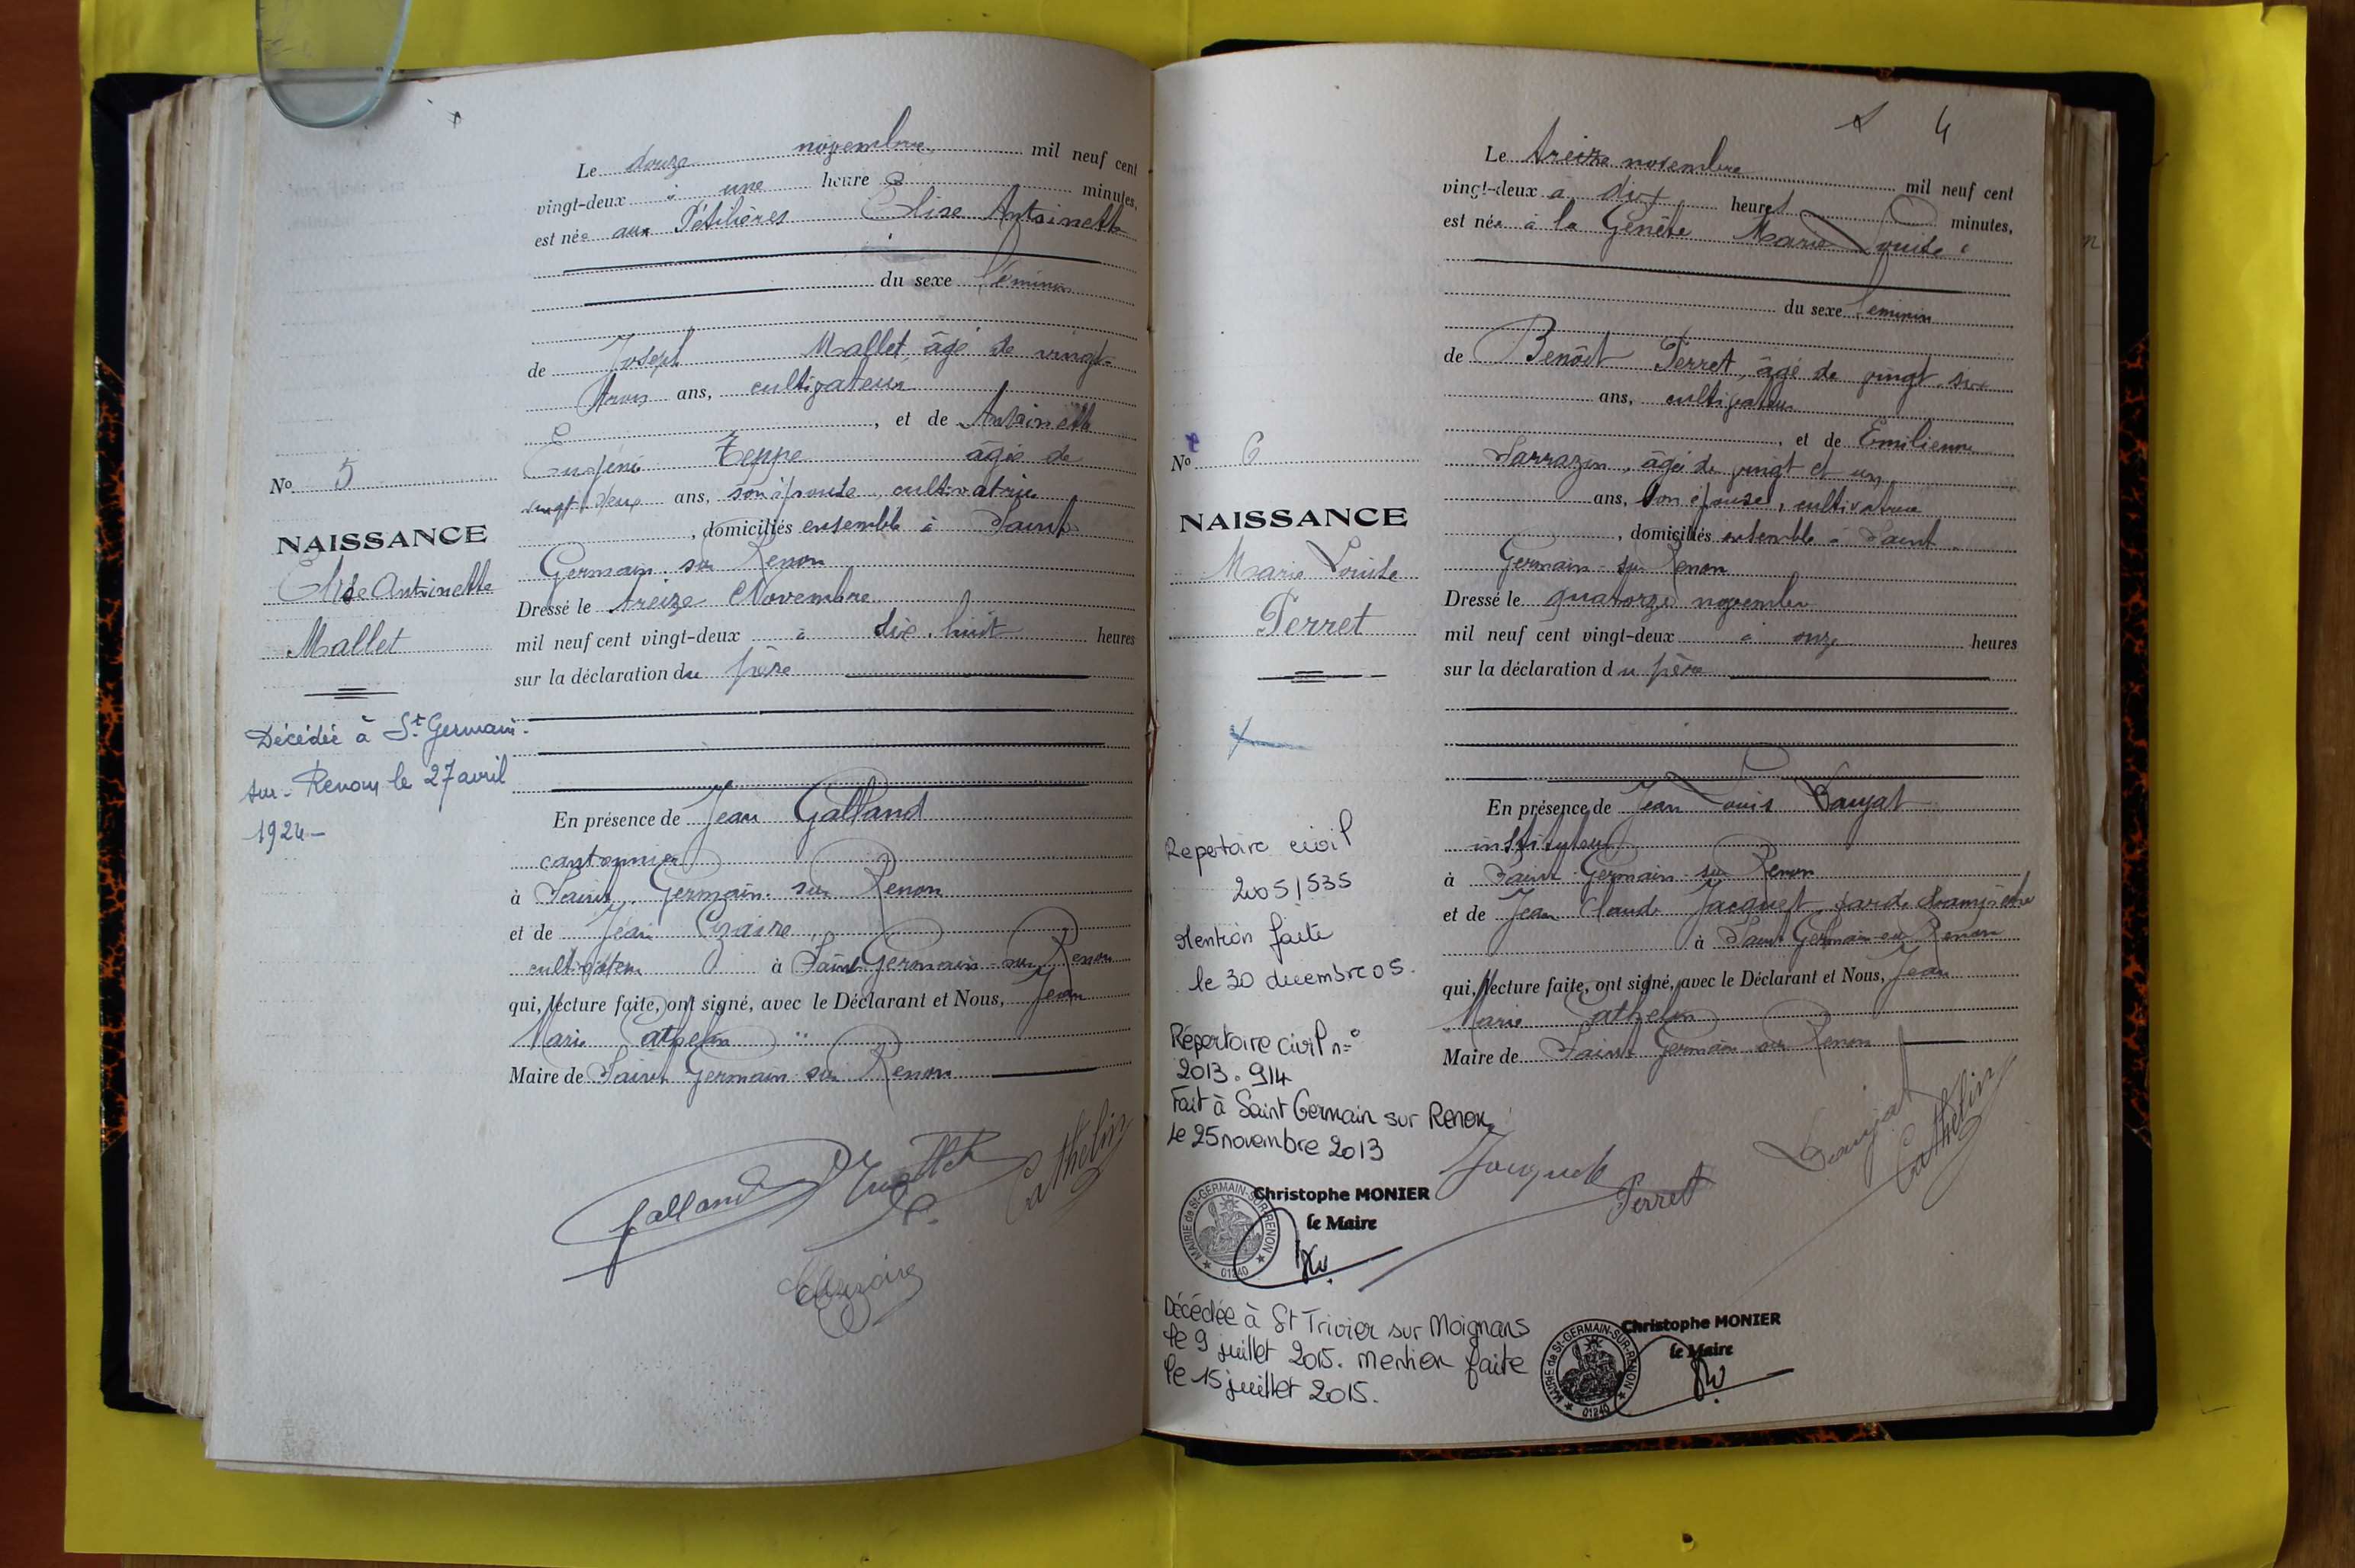 Le douze novembre mil neuf cent
vingt-deux à une heure minutes,
est née aux Pétilières Elise Antoinette
du sexe féminin
de Joseph Mallet, âgé de vingt-
trois ans, cultivateur
, et de Antoinette
Eugénie Teppe âgée de
vingt deux ans, son épouse, cultivatrice
, domiciliés ensemble à Saint
Germain-sur Renon
Dressé le treize Novembre
mil neuf cent vingt-deux à dix-huit heures
sur la déclaration du père
En présence de Jean Galland
cantonnier
à Saint-Germain-sur Renon
et de Jean
cultivateur à Saint-Germain-sur Renon
qui, lecture faite, ont signé, avec le Déclarant et Nous, Jean
Marie Cathelin
Maire de Saint Germain sur Renon
No 5
NAISSANCE
Elise Antoinette
Mallet
Décédée à St. Germain-
sur-Renon le 27 avril
1924-
Galland Mallet Cathelin
4
Le treize novembre mil neuf cent
vingt-deux à dix heures minutes,
est née à la Genête Marie Louise
du sexe féminin
de Benôit Perret, âgé de vingt-six
ans, cultivateur
, et de Emilienne
Sarrazin, âgée de vingt et un
ans, son épouse, cultivatrice
, domiciliés ensemble à Saint
Germain-sur Renon
Dressé le quatorze novembre
mil neuf cent vingt-deux à onze heures
sur la déclaration du père
En présence de Jean Louis Daujat
instituteur
à Saint Germain-sur Renon
et de Jean Claude Jacquet, garde champêtre
à Saint Germain-sur Renon
qui, lecture faite, ont signé, avec le Déclarant et Nous, Jean
Marie Cathelin
Maire de Saint Germain sur Renon
No 6
NAISSANCE
Marie Louise
Perret
Repertoire civil
2005/535
Mention faite
le 30 decembre 05.
Répertoire civil n=°
2013.914
Fait à Saint Germain sur Renon
le 25 novembre 2013
MAIRIE de St-GERMAIN-SUR-RENON
01240
Christophe MONIER
le Maire
Jacquet Perret Daujat Cathelin
Décédée à St Trivier sur Moignans
le 9 juillet 2015. mention faite
le 15 juillet 2015.
MAIRIE de St-GERMAIN-SUR-RENON
01240
Christophe MONIER
le Maire